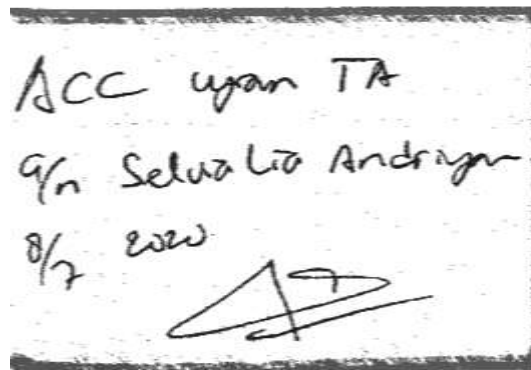 ACC ujian TA
a/n Selvia Lia Andriyan
8/7 2020